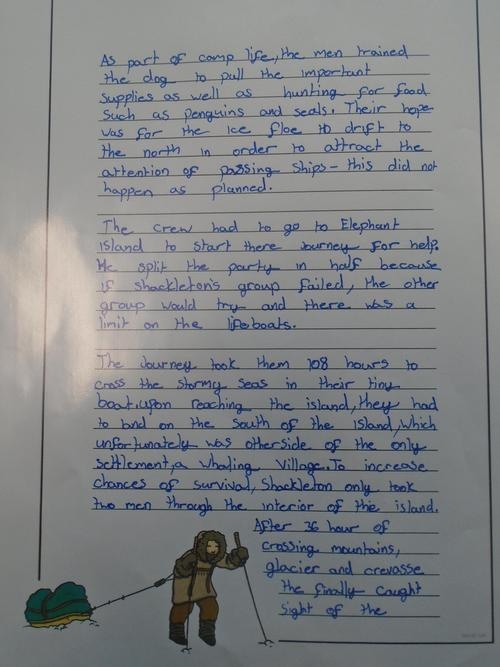 As part of camp life, the men trained
the dog to pull the important
supplies as well as hunting for food
such as penguins and seals. Their hope
was for the ice floe to drift to
the north in order to attract the
attention of passing ships - this did not
happen as planned.
The crew had to go to Elephant
Island to start there Journey for help.
He split the party in half because
if Shackleton's group failed, the other
group would try and there was a
limit on the lifeboats.
The Journey took them 108 hours to
cross the stormy seas in their tiny
boat. upon reaching the island, they had
to land on the South of the Island, which
unfortunately was otherside of the only
settlement, a whaling village. To increase
chances of survival, Shackleton only took
two men through the interior of the island.
After 36 hour of
crossing mountains,
glacier and crevasse
the finally caught
sight of the